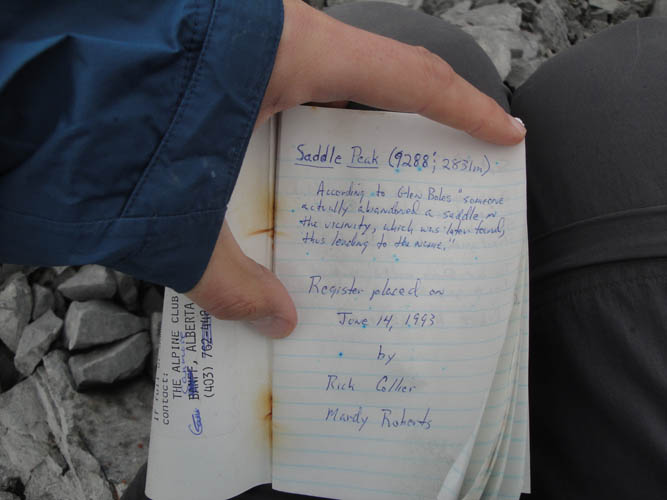 Saddle Peak (9288'; 2831m)
According to Glen Boles "someone
actually abandoned a saddle in
the vicinity, which was later found,
thus leading to the name."
Register placed on
June 14, 1993
by
Rick Collier
Mardy Roberts
contact:
THE ALPINE CLUB
BANFF, ALBERTA
(403) 762-